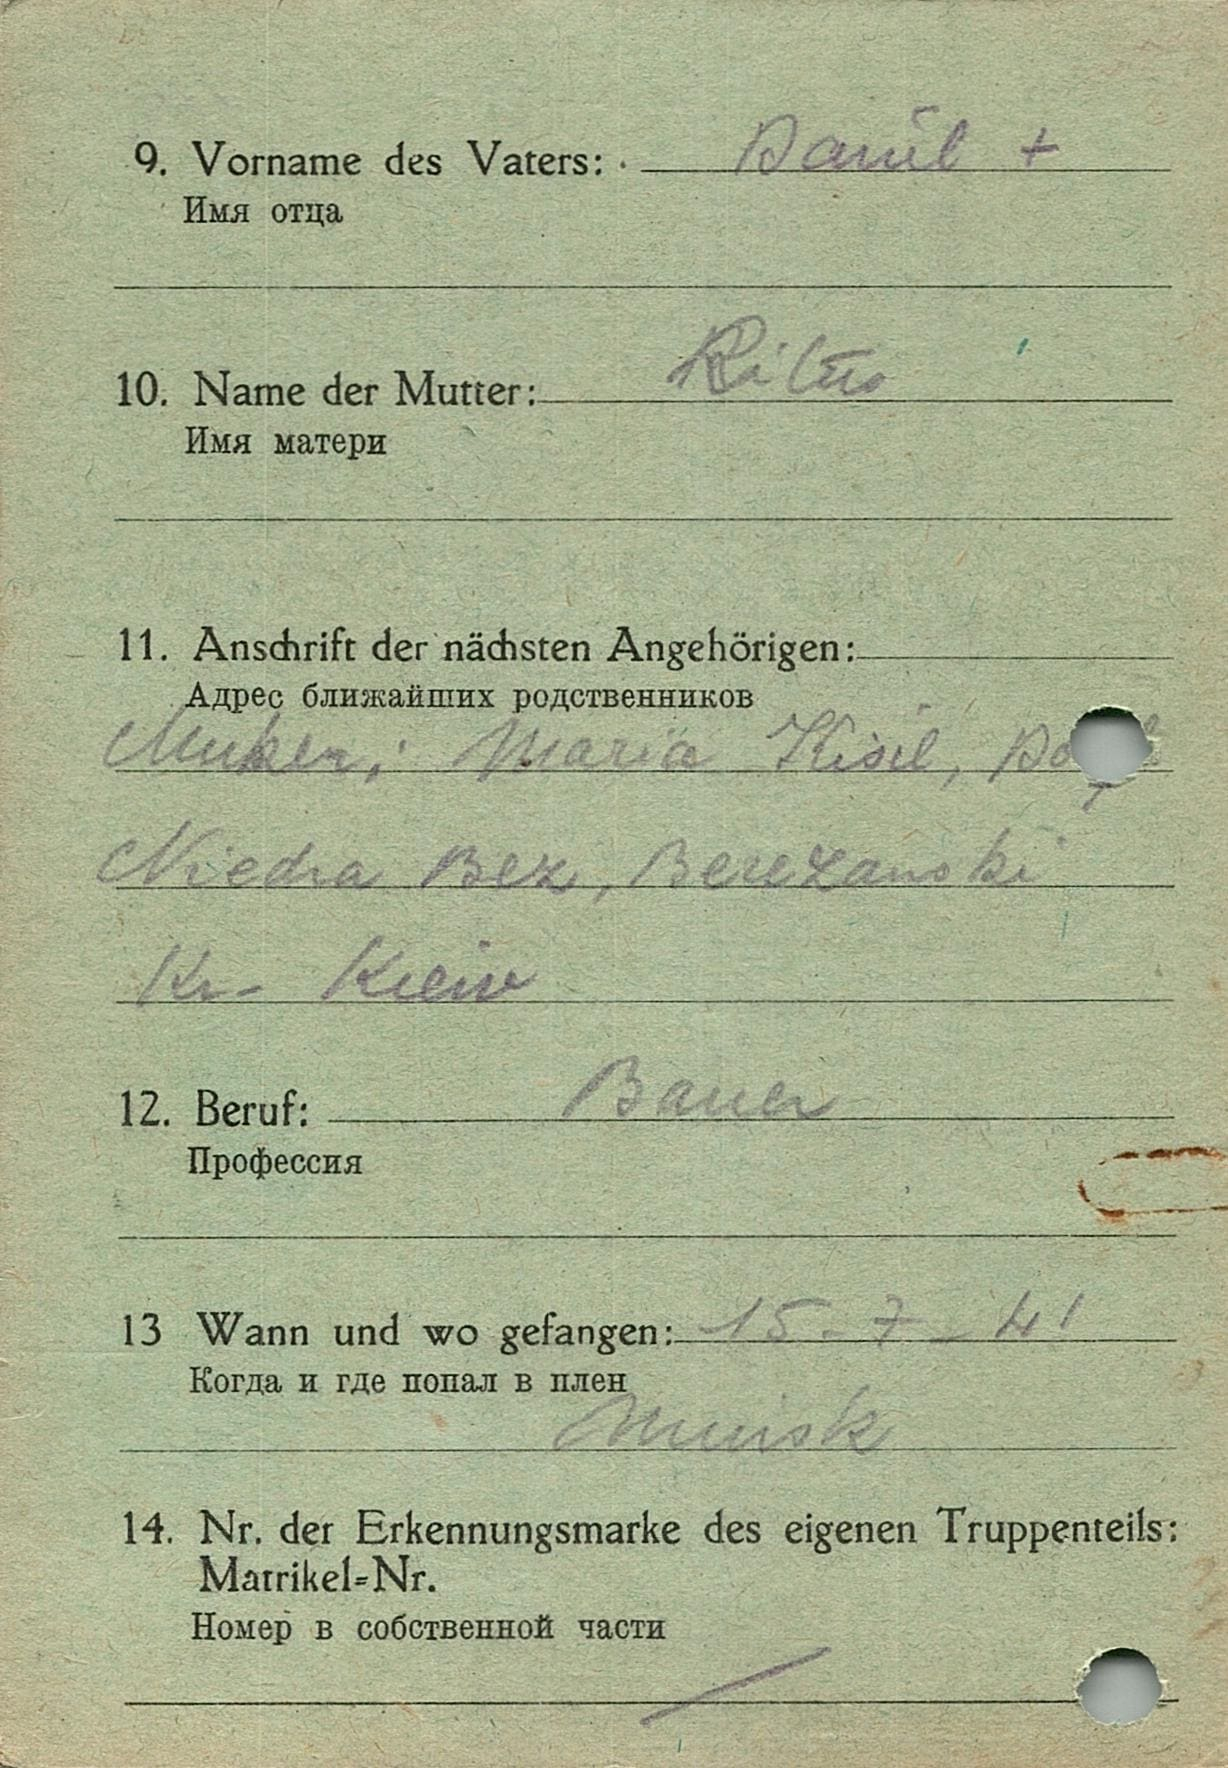 9. Vorname des Vaters: Daniil +
Имя отца
10. Name der Mutter:
Имя матери
11. Anschrift der nächsten Angehörigen:
Адрес ближайших родственников
Maria Kisil,
Niedra Bez, Berezanski
Kr- Kiew
12. Beruf: Bauer
Профессия
13 Wann und wo gefangen: 15-7-41
Когда и где попал в плен
Minsk
14. Nr. der Erkennungsmarke des eigenen Truppenteils:
Matrikel-Nr.
Номер в собственной части